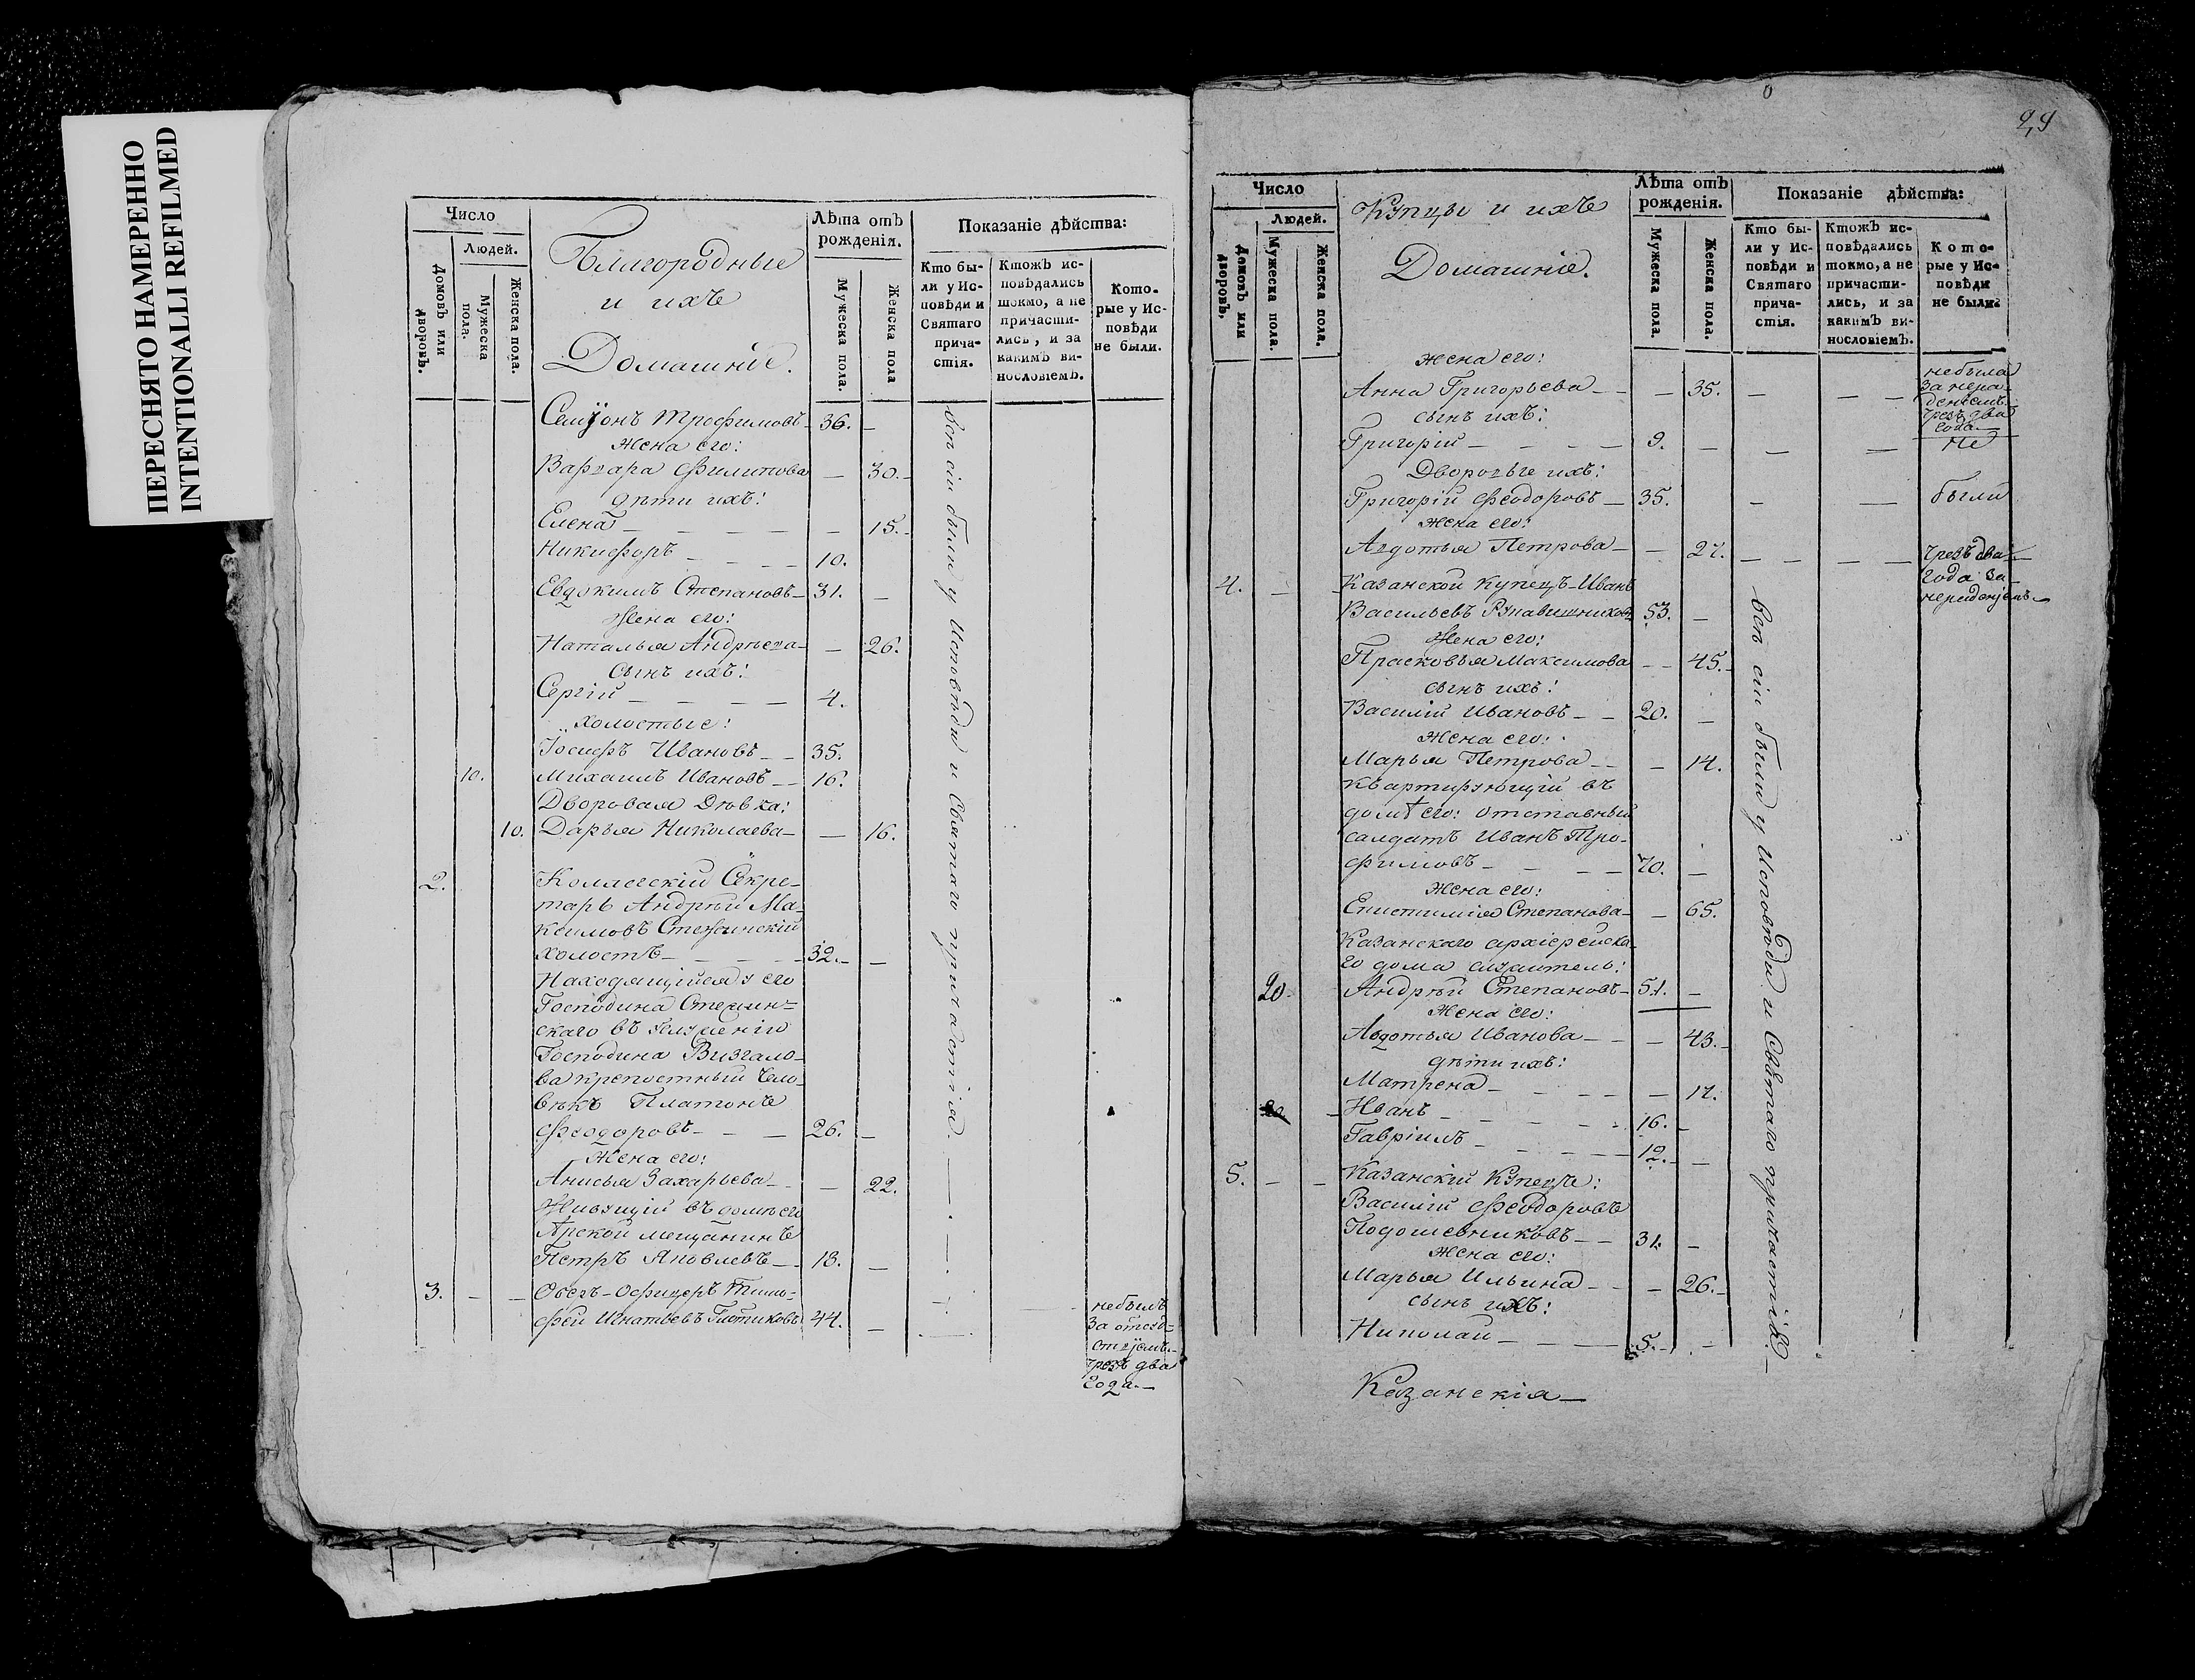 ПЕРЕСНЯТО НАМЕРЕННО
INTENTIONALLI REFILMED
Число
Людей.
Домовъ или дворовъ.
Мужеска пола.
Женска пола.
Благородные
и ихъ
Домашніе.
Лѣта отъ
рожденія.
Мужеска пола.
Женска пола
Показаніе дѣйства:
Кто бы-
ли у Ис-
повѣди и
Святаго
прича-
стія.
Ктожъ ис-
повѣдались
токмо, а не
причасти-
лись, и за
какимъ ви-
нословіемъ.
Кото-
рые у Ис-
повѣди
не были.
Семіонъ Трофимовъ 36. —
Жена его:
Варвара Филипова — 30.
дѣти ихъ:
Елена — 15.
Никифоръ 10.
Евдокимъ Степановъ 31. —
Жена его:
Наталья Андрѣева — 26.
Сынъ ихъ:
Сергій 4.
холостые:
Іосифъ Ивановъ 35.
10. Михаилъ Ивановъ 16.
Дворовая Дѣвка:
10. Дарья Николаева — 16.
2. Коллегскій Секре-
тарь Андрѣй Ма-
ксимовъ
холостъ 32. —
Находящійся у его
Господина
скаго въ услуженіи
Господина
ва крепостный Чело-
вѣкъ Платонъ
Феодоровъ 26. —
Жена его:
Анисья Захарьева — 22.
Живущій въ домѣ его
Арской мещанинъ
Петръ Яковлевъ 18. —
3. — — Оберъ-Офицеръ Тимо-
фей Игнатьевъ 44. —
всѣ сіи были у Исповѣди и Святаго причастія.
небылъ
за отсуд-
ствіемъ
чрезъ два
года.
29
Число
Людей.
Домовъ или дворовъ,
Мужеска пола.
Женска пола.
Купцы и ихъ
Домашніе.
Лѣта отъ
рожденія.
Мужеска пола.
Женска пола.
Показаніе дѣйства:
Кто бы-
ли у Ис-
повѣди и
Святаго
прича-
стія.
Ктожъ ис-
повѣдались
токмо, а не
причасти-
лись, и за
какимъ ви-
нословіемъ.
Кото-
рые у Ис-
повѣди
не были.
жена его:
Анна Григорьева — 35. — —
небыла
за нера-
деніемъ
чрезъ два
года
сынъ ихъ:
Григорій 9. — — — не
Дворовые ихъ:
Григорій Феодоровъ 35. — — были
жена его:
Авдотья Петрова — 27. — — чрезъ два
года за
нерадѣніемъ
4. — — Казанской купецъ Иванъ
Васильевъ Рукавишниковъ 53. —
Жена его:
Прасковья Максимова — 45.
сынъ ихъ:
Василій Ивановъ 20. —
Жена его:
Марья Петрова — 14.
Квартирующій въ
домѣ его: отставный
салдатъ Иванъ Тро-
фимовъ 70. —
Жена его:
Епистимія Степанова — 65.
Казанскаго архіерейска-
го дома служитель:
20. Андрѣй Степановъ 51. —
Жена его:
Авдотья Иванова — 43.
дѣти ихъ:
Матрена — 17.
Иванъ 16. —
Гавріилъ 12. —
5. — — Казанскій Купецъ:
Василій Феодоровъ
Подошевниковъ 31. —
жена его:
Марья Ильина — 26.
сынъ ихъ:
Николай 5. —
всѣ сіи были у Исповѣди и Святаго причастія.
Казанскія